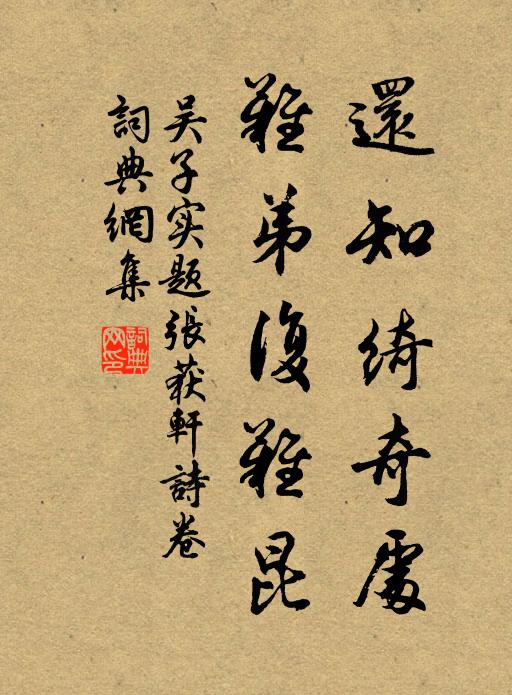 還知綺奇處
難弟復難昆
吴子实题張荻軒詩卷
詞典網集
詞典網印